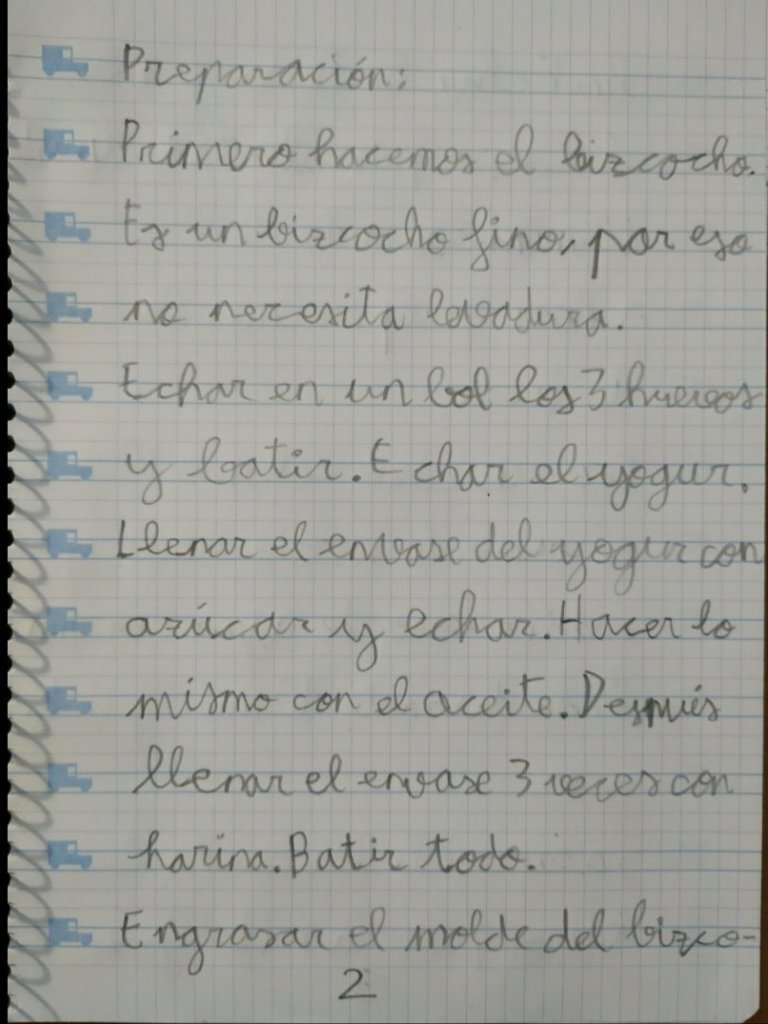 Preparación:
Primero hacemos el bizcocho.
Es un bizcocho fino, por eso
no necesita levadura.
Echar en un bol los 3 huevos
y batir. Echar el yogur.
Llenar el envase del yogur con
azúcar y echar. Hacer lo
mismo con el aceite. Después
llenar el envase 3 veces con
harina. Batir todo.
Engrasar el molde del bizco-
2